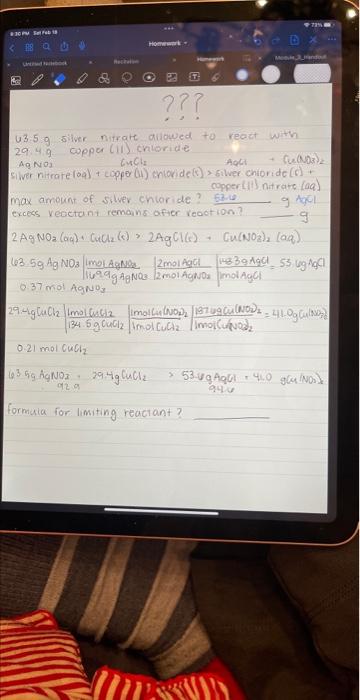 8:30 PM Sat Feb 18
72%
Homework
Untitled Notebook
Recitation
Homework
Module_3_Handout
???
63.5 g silver nitrate allowed to react with
29.4 g copper (II) chloride
AgNO3 CuCl2 AgCl + Cu(NO3)2
silver nitrate (aq) + copper (II) chloride (s) > silver chloride (s) +
copper (II) nitrate (aq)
max amount of silver chloride? 53.6 g AgCl
excess reactant remains after reaction? ____ g
2AgNO3 (aq) + CuCl2 (s) > 2AgCl (s) + Cu(NO3)2 (aq)
63.5g AgNO3 | 1mol AgNO3 | 2mol AgCl | 143.3g AgCl = 53.6g AgCl
169.9g AgNO3 | 2mol AgNO3 | 1mol AgCl
0.37 mol AgNO3
29.4g CuCl2 | 1mol CuCl2 | 1mol Cu(NO3)2 | 187.6g Cu(NO3)2 = 41.0g Cu(NO3)2
134.5g CuCl2 | 1mol CuCl2 | 1mol Cu(NO3)2
0.21 mol CuCl2
63.5g AgNO3 + 29.4g CuCl2 > 53.6g AgCl + 41.0 g Cu(NO3)2
92.9 94.6
formula for limiting reactant? ____